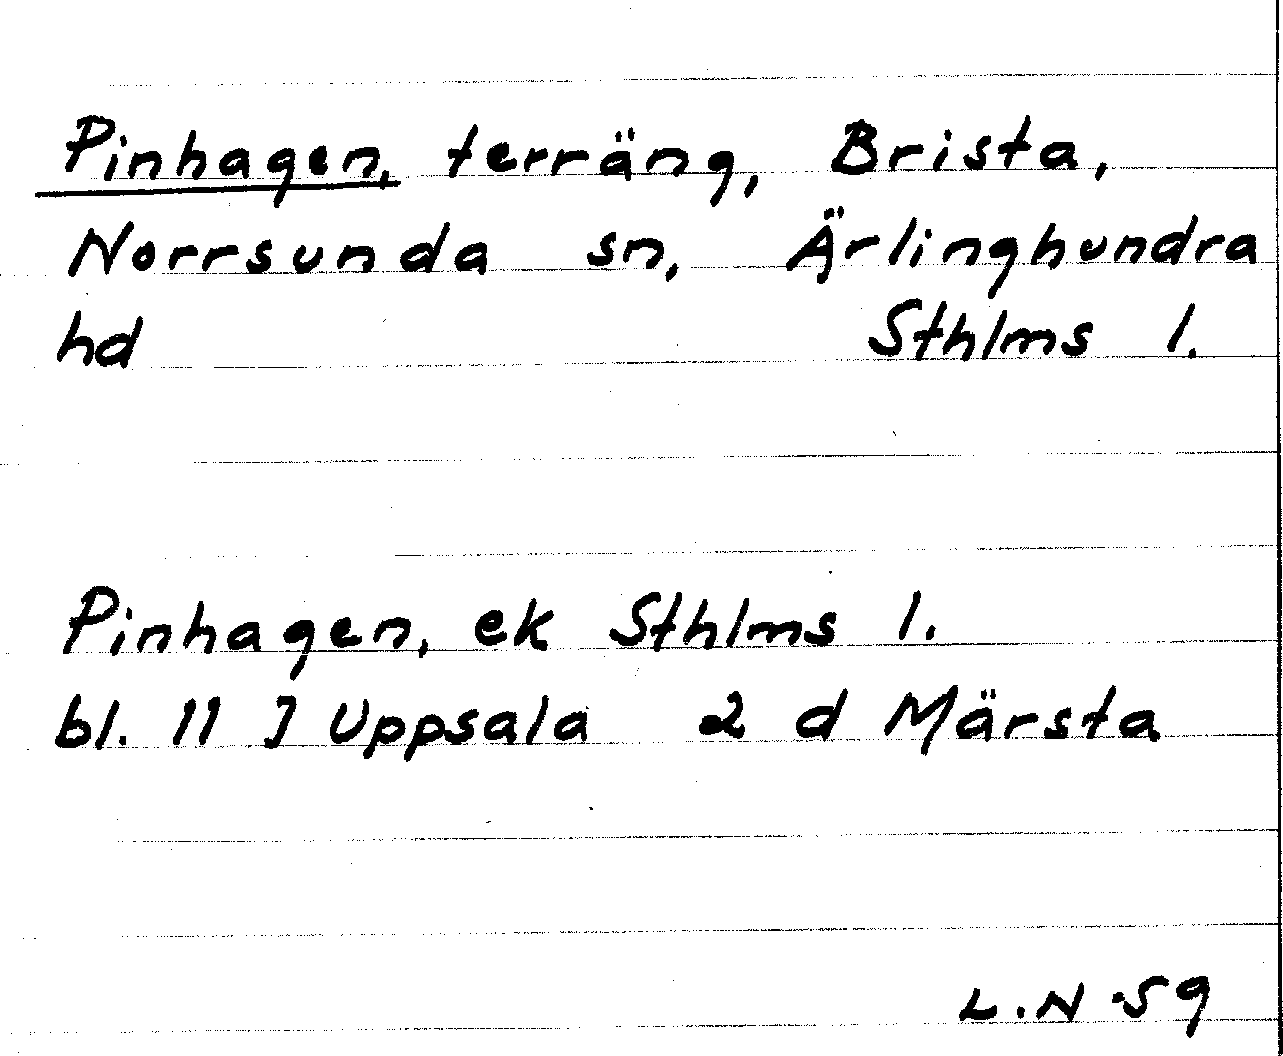 Pinhagen, terräng, Brista,
Norrsunda sn, Ärlinghundra
hd Sthlms l.
Pinhagen, ek Sthlms l.
bl. 11 J Uppsala 2 d Märsta
L.N.59